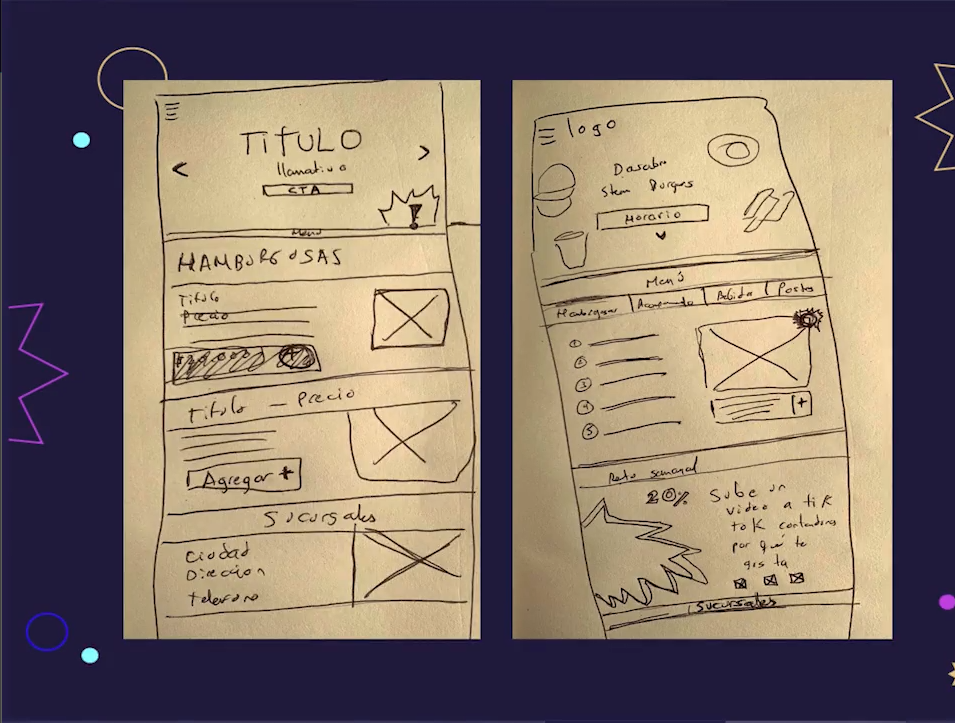 TITULO
llamativo
CTA
Menú
HAMBURGUSAS
Titulo
Precio
Titulo — Precio
Agregar +
Sucursales
Ciudad
Direccion
Telefono
logo
Burges
Horario
Menú
Bebida
Postes
1
2
3
4
5
+
Reto semanal
20%
Sube un
video a tik
tok contandonos
por qué te
gusta
Sucursales